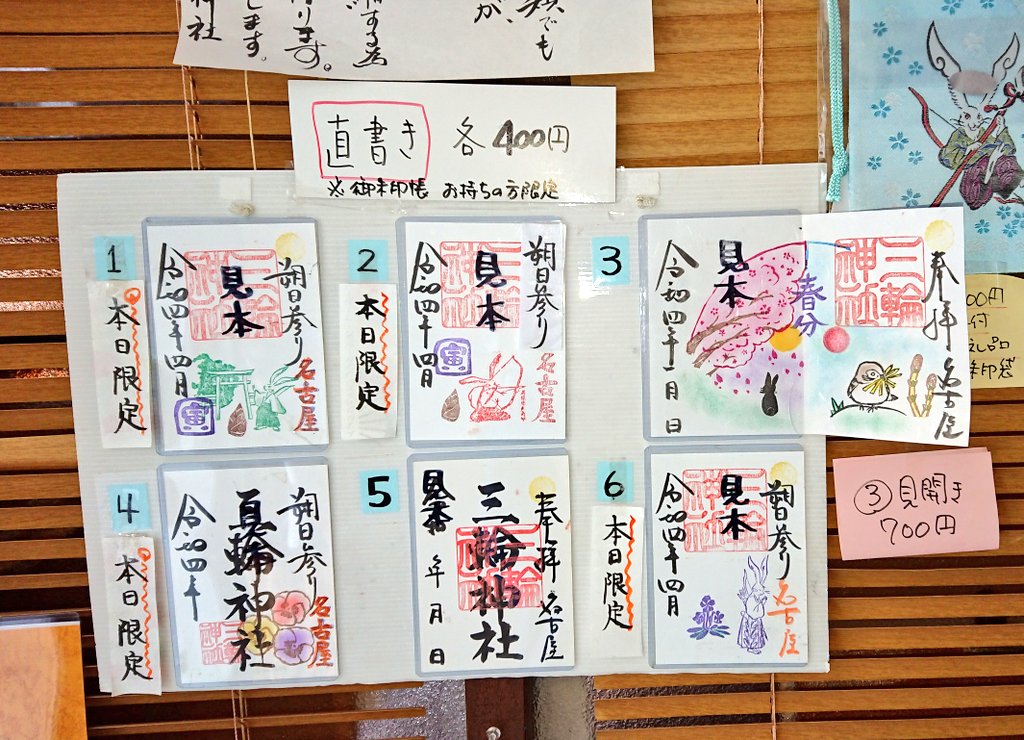 でも
が、
する為
ります。
します。
神社
直書き 各400円
※御朱印帳 お持ちの方限定
1
本日限定
朔日参り
名古屋
三輪神社
見本
令和四年四月
寅
2
本日限定
朔日参り
名古屋
三輪神社
見本
令和四年四月
寅
3
奉拝
名古屋
三輪神社
春分
見本
令和四年 月 日
00円
付
袋
③見開き
700円
4
本日限定
朔日参り
名古屋
三輪神社
令和四年
5
奉拝
名古屋
三輪神社
見本
年 月 日
6
本日限定
朔日参り
名古屋
三輪神社
見本
令和四年四月